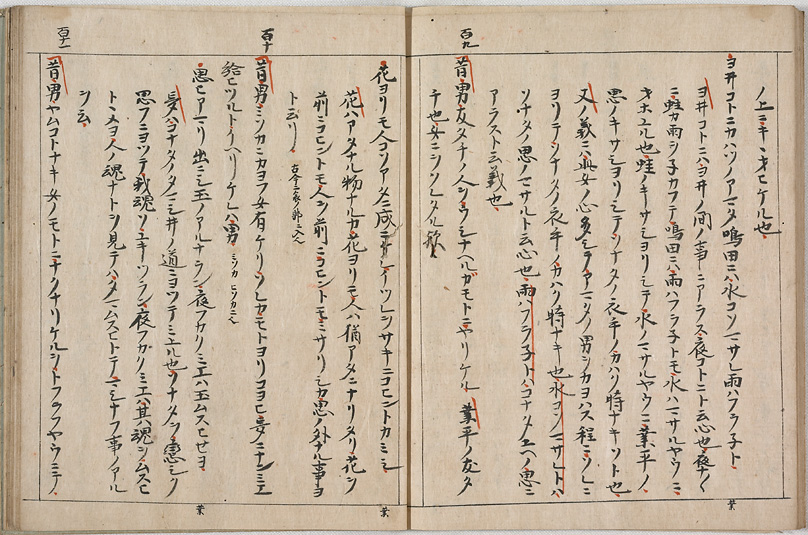 ノ上ニキオヒケル也
ヨヰコトニカハツノアマタ鳴田ニハ水コソマサレ雨ハフラ子ト
ヨヰコトニハヨヰノ間ノ事ニアラス夜コトニト云心也
ニ蛙カ雨ヲ子カフテ鳴田ニハ雨ハフラ子トモ水ハマサルヤウニ
キホエル也蛙ノ ヨリミテ水ノマサルヤウニ業平ノ
思ノキサミヨリミテソナタノ衣手ノカハク特ナキソト也
又ノ義ニハ此女ノ心多ミテアマタノ男ヲカヨハス程ニソレニ
ヨリテソナタノ衣手ノカハク特ナキ也水コソマサレトハ
ソナタノ思ノマサルト云心也雨ハフラ子トハコナタノ上ヘノ思ニ
アラスト云義也
百九
昔男友タチノ人ヲウシナヘルガモトニヤリケル 業平ノ友タ
チ也女ニヲクレタル歟
花ヨリモ人コソアタニ成ニケレイツレヲサキニコヒントカミシ
花ハアタナル物ナルカ花ヨリモ人ハ猶アタニナリタリ花ヲ
前ニコヒントモ人ヲ前ニコヒントモミサリシカ思ノ外ナル事ヨ
ト云リ 古今
百十
昔男ミソカニカヨフ女有ケリソレカモトヨリコヨヒ夢ニナンミエ
給ヒツルトイヘリケレハ男 ミソカ ヒソカニ也
思ヒアマリ出ニシ玉ノアルナラン夜フカクミエハ玉ムスヒセヨ
夢ハコナタノタマシヰノ道ニヨツテミエル也ソナタヲ
思フニヨツテ我魂ソユキツラン夜フカクミエハ其魂ヲムスヒ
トメヨ人ノ魂ナトヲ見テハタマムスヒトテマシナフ事ノアル
ヲ云
百十一
昔男ヤムコトナキ女ノモトニナクナリケルヲトフラフヤウニテ